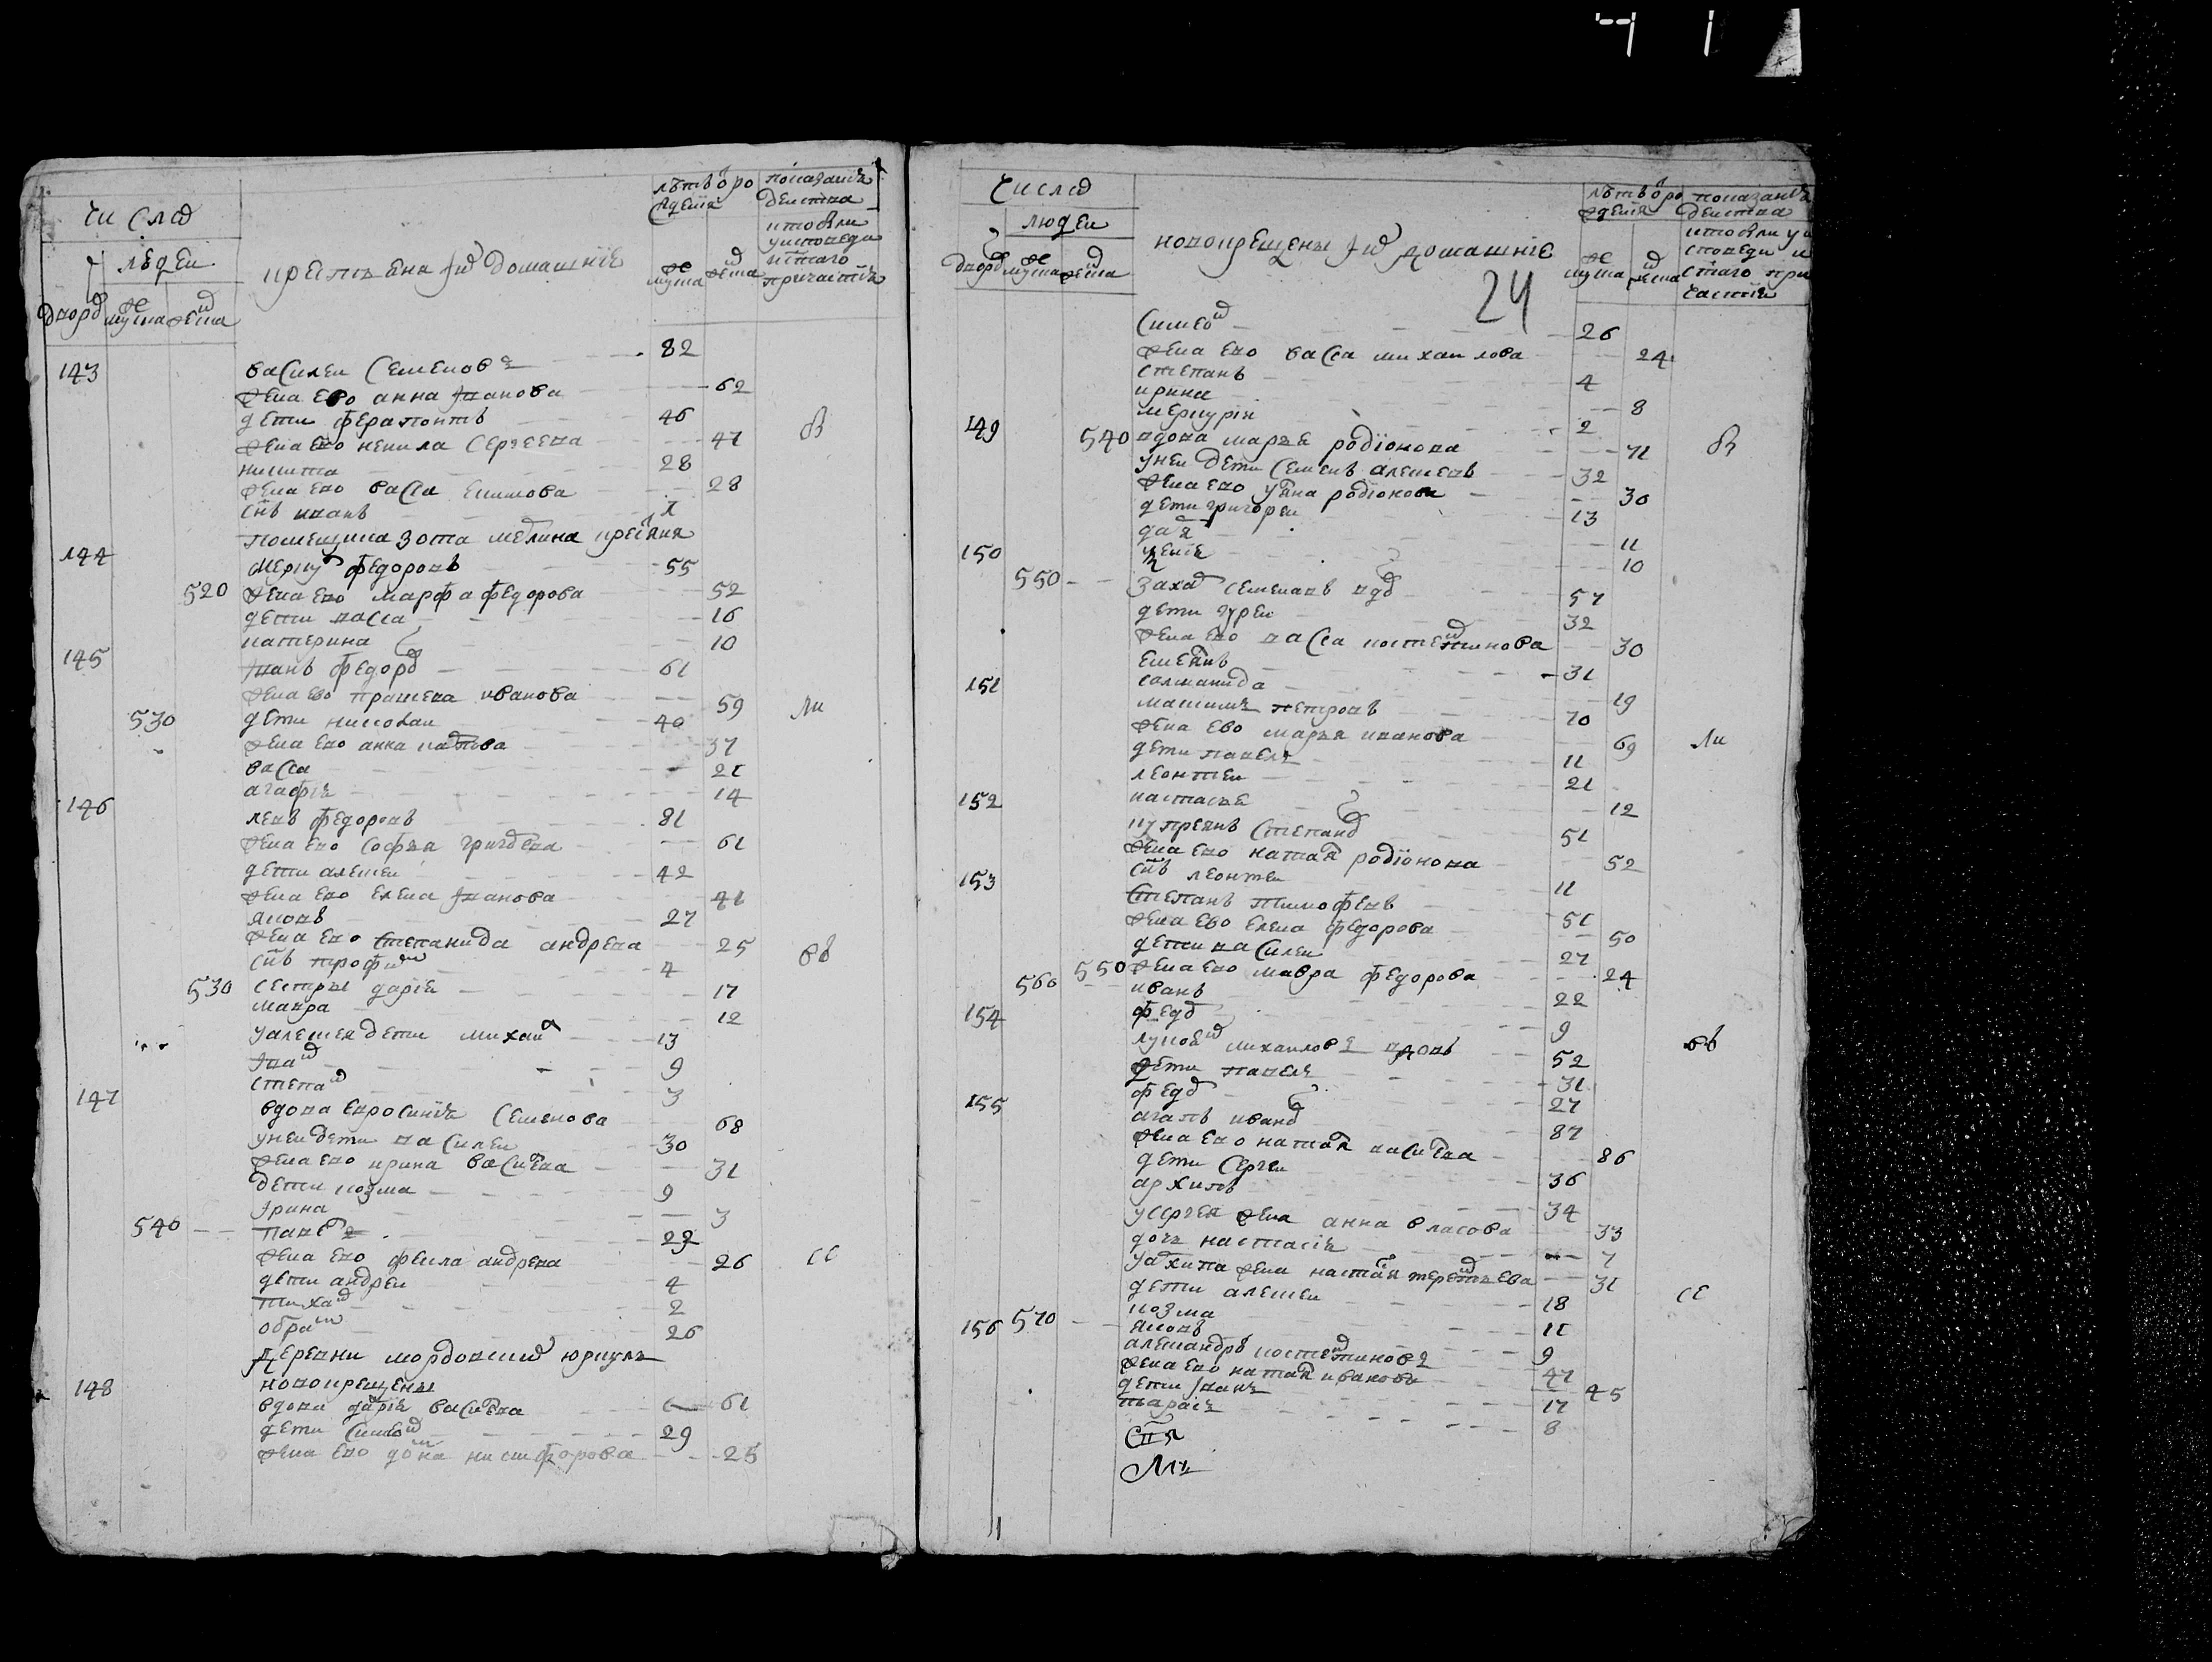 число
людеи
дворо
муже
жен
крестьяне и домашние
лѣтъ о рождения
муже
жен
показание действа кто были у исповеди и святаго причастия
143 василеи семеновъ 82
жена ево анна иванова 62
дети ферапонтъ 46
жена ево ненила сергеева 47
никита 28
жена ево васса екимова 28
снъ иванъ
помещика зота мелина крестьяня
144 меркур федоровъ 55
520 жена ево марфа федорова 52
дети васса 16
катерина 10
145 иванъ федоро 61
жена ево прасковя иванова 59
530 дети николаи 40
жена ево анна 37
васса 21
агафия 14
146 левъ федоровъ 81
жена ево софья григорева 61
дети алексеи 42
жена ево елена иванова 41
яковъ 27
жена ево степанида андреева 25
снъ трофим 4
530 сестры дария 17
мавра 12
у алексея дети михаил 13
иван 9
степан 3
147 вдова евросиния семенова 68
у неи дети василеи 30
жена ево ирина василева 31
дети козма 9
ирина 3
540 павел 29
жена ево фекла андреева 26
дети андреи 4
тихан 2
обрам 26
деревни мордовскои юркуль
новокрещены
148 вдова дария василева 61
дети симеон 29
жена ево домна никифорова 25
число
людеи
дворо
муже
жен
новокрещены и домашние
24
лѣтъ о рождения
муже
жен
показание действа кто были у исповеди и святаго причастия
симеон 26
жена ево васса михаилова 24
степанъ 4
ирина 8
меркури 2
149 540 вдова марья родионова 71
у неи дети семенъ алексеевъ 32
жена ево уляна родионова 30
дети григореи 13
даря 11
150 10
550 захар семенавъ вдо 57
дети гуреи 32
жена ево васса костентинова 30
емелянъ 31
саламанида 19
151 максимъ петровъ 70
жена ево марья иванова 69
дети павелъ 11
леонтеи 21
настасье 12
152 куприянъ степано 51
жена ево наталя родионова 52
снъ леонтеи 11
153 степанъ тимофеевъ 51
жена ево елена федорова 50
дети василеи 27
560 550 жена ево мавра федорова 24
иванъ 22
федо 9
154 лукоян михаиловъ вдовъ 52
дети павелъ 31
федо 27
155 агапъ ивано 87
жена ево наталя василева 86
дети сергеи 36
архипъ 34
у сергея жена анна власова 33
дочь настасия 7
у архипа жена настася терентьева 31
дети алексеи 18
570 козма 11
яковъ 9
156 александръ костентиновъ 47
жена ево наталя иванова 45
дети иванъ 17
тарасъ 8